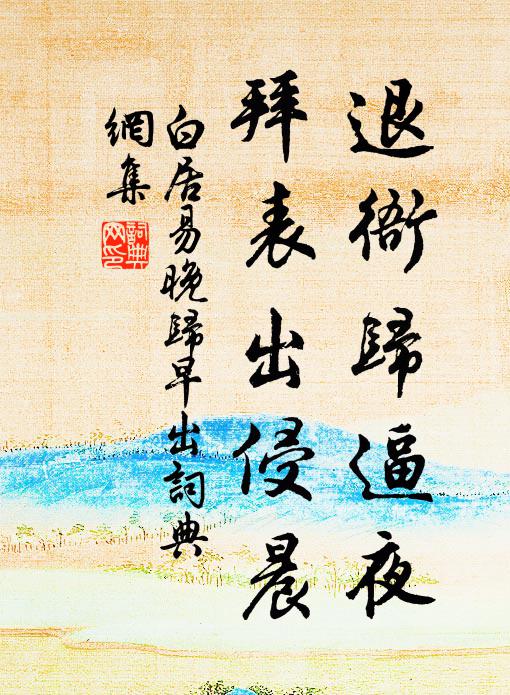 退衙歸逼夜
拜表出侵晨
白居易晚歸早出詞典
網集
詞典
网印